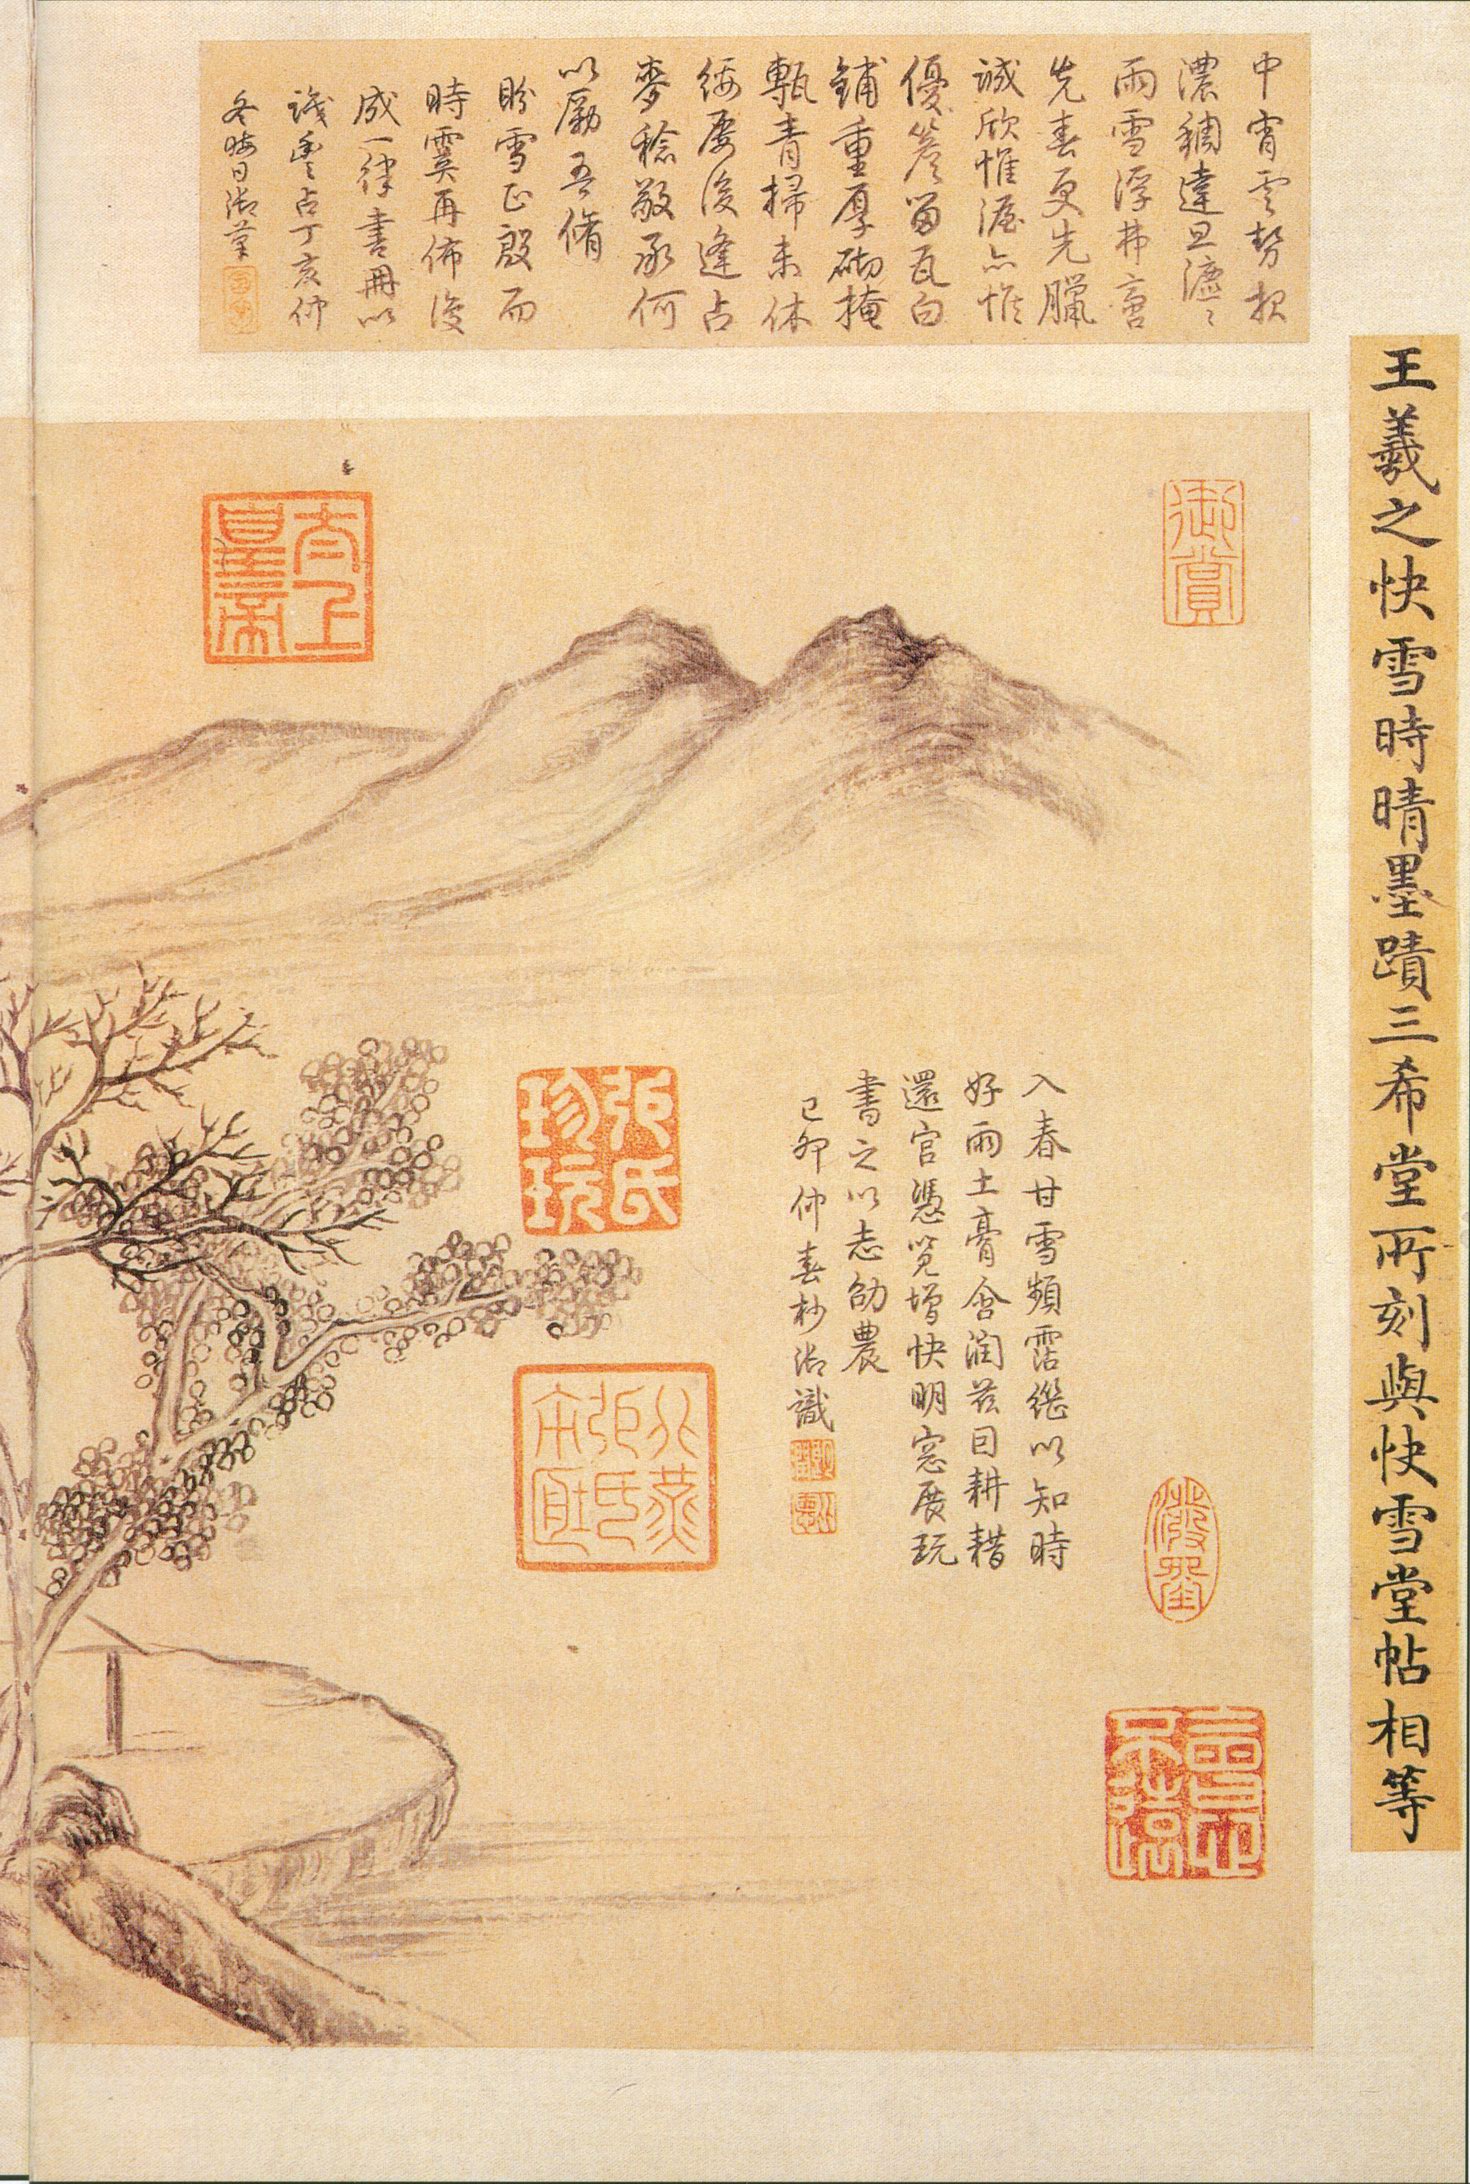 王羲之快雪時晴墨蹟三希堂所刻與快雪堂帖相等
中宵雲勢報
濃稠達旦濃〻
雨雪浮弗啻
先春更先臘
誠欣惟渥亦惟
優簷留瓦白
鋪重厚砌掩
甎青掃未休
綏屢後逢占
麥稔敬承何
以勵吾脩
盼雪正殷而
時霙再佈復
成一律書冊以
識豐占丁亥仲
冬晦日御筆
御賞
太上皇帝
入春甘雪頻霑繼以知時
好雨土膏含潤茲因耕耤
還宮憑覽增快明窓展玩
書之以志劭農
己卯仲春杪御識
張氏珍玩
北燕張氏